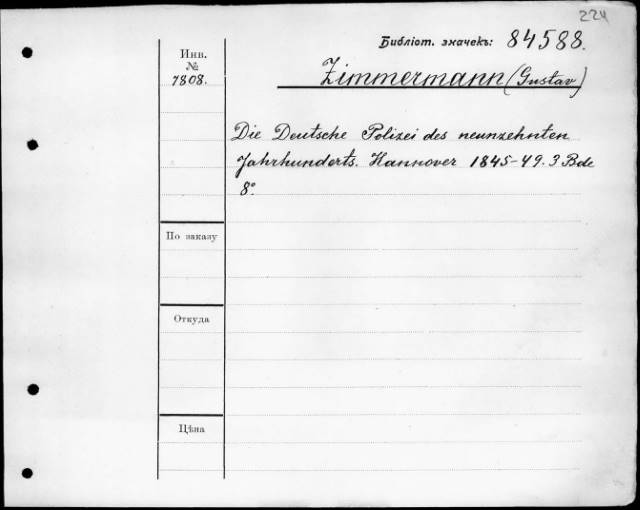 224
Библіот. значекъ: 84588.
Инв.
№
7808.
Zimmermann (Gustav)
Die Deutsche Polizei des neunzehnten
Jahrhunderts. Hannover 1845-49. 3 Bde
8°.
По заказу
Откуда
Цѣна